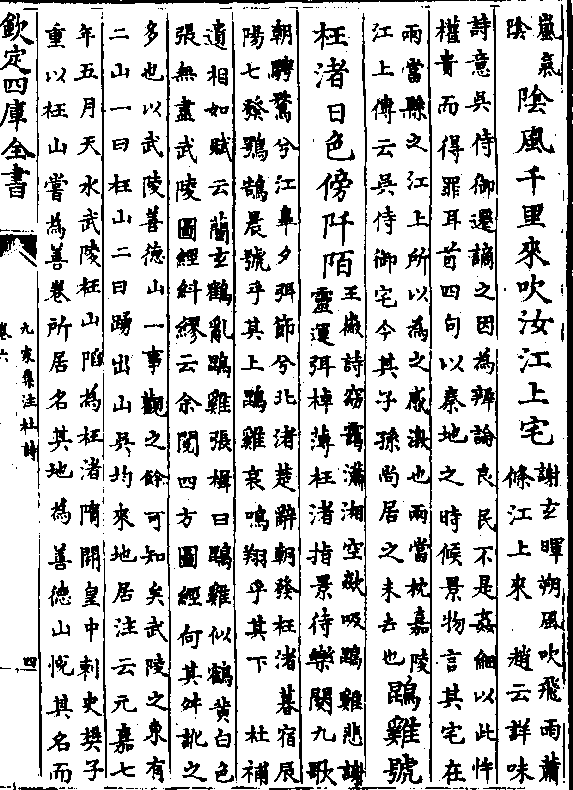 嵐氣
陰
陰風千里來吹汝江上宅
謝玄暉朔風吹飛雨蕭
條江上來 趙云詳味
詩意吳侍御遷謫之因為辨論良民不是姦細以此忤
權貴而得罪耳首四句以秦地之時候景物言其宅在
兩當縣之江上所以為之感激也兩當枕嘉陵
江上傳云吳侍御宅今其子孫尚居之未去也
鵾雞號
枉渚日色傍阡陌
王微詩窈靄瀟湘空歙吸鵾雞悲謝
靈運弭棹薄枉渚指景待樂闋九歌
朝騁騖兮江臯夕弭節兮北渚楚辭朝發枉渚暮宿辰
陽七發鵾鵠晨號乎其上鵾雞哀鳴翔乎其下 杜補
遺相如賦云藺玄鶴亂鵾雞張揖曰鵾雞似鶴黃白色
張無盡武陵圖經糾繆云余閱四方圖經何其舛訛之
多也以武陵善德山一事觀之餘可知矣武陵之東有
二山一曰枉山二曰踴出山吳均來地居注云元嘉七
年五月天水武陵枉山陷為枉渚隋開皇中刺史樊子
重以枉山嘗為善卷所居名其地為善德山悦其名而
欽定四庫全書
九家集注杜詩
卷六
四